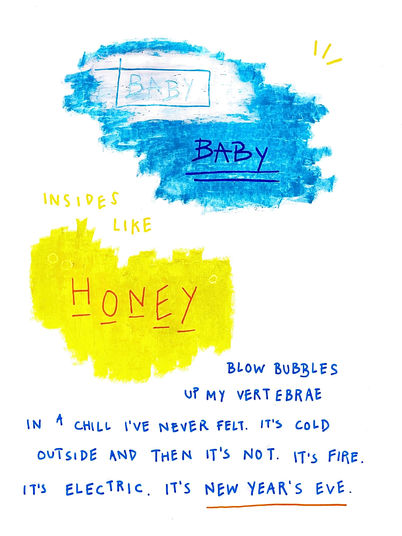 BABY
BABY
INSIDES
LIKE
HONEY
BLOW BUBBLES
UP MY VERTEBRAE
IN A CHILL I'VE NEVER FELT. IT'S COLD
OUTSIDE AND THEN IT'S NOT. IT'S FIRE.
IT'S ELECTRIC. IT'S NEW YEAR'S EVE.